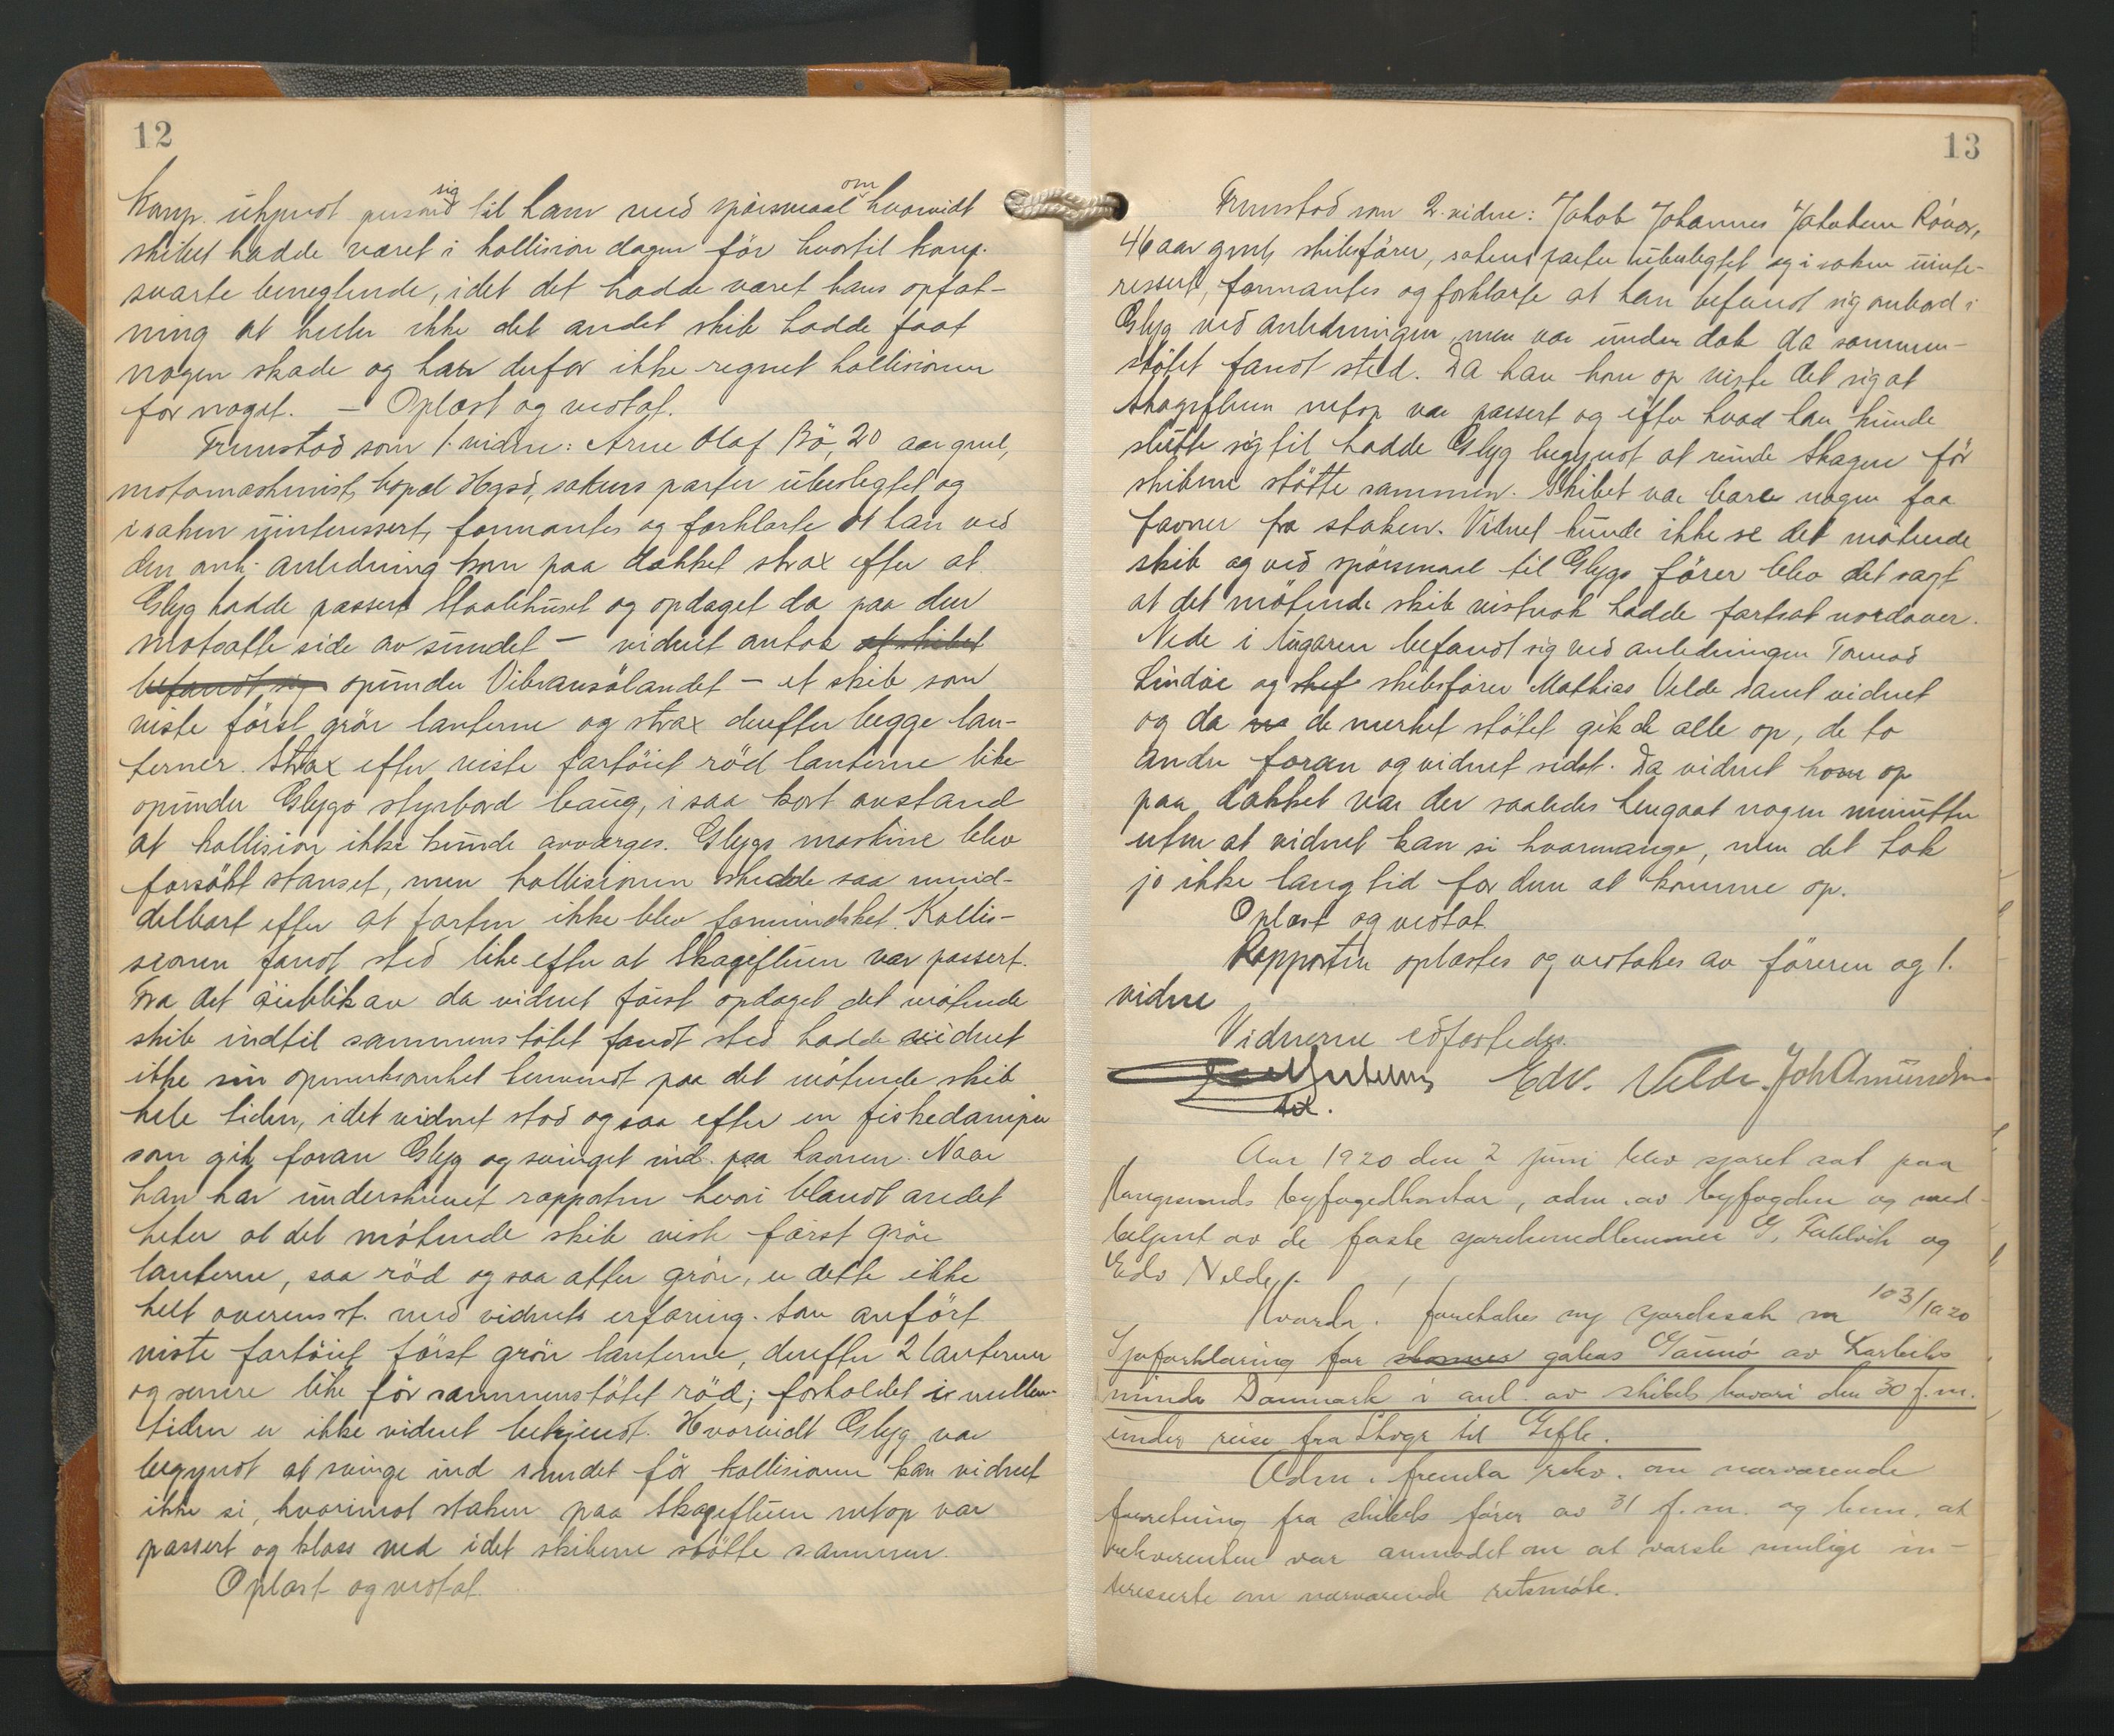 12
Komp. ukjendt person sig til ham med spörsmaal om hvorvidt
skibet hadde været i kollision dagen för hvortil komp.
svarte benegtende, idet det hadde været hans opfat-
ning at heller ikke det andet skib hadde faat
nogen skade og han derfor ikke regnet kollisionen
for noget. — Oplæst og vedtat.
Fremstod som 1. vidne: Arne Olaf Bö, 20 aar gml,
motormaskinist, bopæl sakens parter ubeslegtet og
i saken uinteressert, formantes og forklarte at han ved
den omh. anledning kom paa dækket strax efter at
Glyg hadde passert Staalehuset og opdaget da paa den
motsatte side av sundet — vidnet antok at skibet
befandt sig opunder Vibransölandet — et skib som
viste först grön lanterne og strax derefter begge lan-
terner. Strax efter viste fartöiet röd lanterne like
opunder Glygs styrbord baug, i saa kort avstand
at kollision ikke kunde avværges. Glygs maskine blev
forsökt stanset, men kollisionen skedde saa umid-
delbart efter at farten ikke blev formindsket. Kollis-
sionen fandt sted like efter at Skageflüen var passert.
Fra det öieblik av da vidnet först opdaget det mötende
skib indtil sammenstötet fandt sted hadde vidnet
ikke sin opmerksomhet henvendt paa det mötende skib
hele tiden, idet vidnet stod og saa efter en fiskedamper
som gik foran Glyg og svinget ind paa havnen. Naar
han har underskrevet rapporten hvori blandt andet
heter at det mötende skib viste först grön
lanterne, saa röd og saa atter grön, er dette ikke
helt overensst. med vidnets erfaring. Som anfört
viste fartöiet först grön lanterne, derefter 2 lanterner
og senere like för sammenstötet röd; forholdet i mellem-
tiden er ikke vidnet bekjendt. Hvorvidt Glyg var
begyndt at svinge ind sundet för kollisionen kan vidnet
ikke si, hvorimot staken paa Skageflüen netop var
passert og klass ved idet skibene stötte sammen.
Oplæst og vedtat.
13
Fremstod som 2. vidne: Jakob Johannes Jakobsen Rövær,
46 aar gml, skibsförer, sakens parter ubeslegtet og i saken uinte-
ressert, formantes og forklarte at han befandt sig ombord i
Glyg ved anledningen, men var under dæk da sammen-
stötet fandt sted. Da han kom op viste det sig at
Skageflüen netop var passert og efter hvad han kunde
slutte sig til hadde Glyg begyndt at runde Skagen för
skibene stötte sammen. Skibet var bare nogen faa
favner fra staken. Vidnet kunde ikke se det mötende
skib og ved spörsmaal til Glygs förer blev det sagt
at det mötende skib vistnok hadde fortsat nordover.
Nede i lugaren befandt sig ved anledningen Tormod
Lindöe og skef skibsförer Mathias Velde samt vidnet
og da de merket stötet gik de alle op, de to
andre foran og vidnet sidst. Da vidnet kom op
paa dækket var der saaledes hengaat nogen minutter
uten at vidnet kan si hvormange, men det tok
jo ikke lang tid for dem at komme op.
Oplæst og vedtat.
Rapporten oplæstes og vedtokes av föreren og 1.
vidne
Vidnerne edfæstedes.
Edv. Velde. Joh Amundsen
Aar 1920 den 2 juni blev sjøret sat paa
Haugesunds byfogedkontor, adm. av byfogden og med-
betjent av de faste sjøretsmedlemmer G. Fahlvik og
Edv Velde.
Hvorda: foretokes ny sjøretssak nr 103/1920
Sjøforklaring for galeas Taunö av Karleks
minde Danmark i anl. av skibets havari den 30 f. m.
under reise fra til Gefle.
Adm. fremla rekv. om nærværende
forretning fra skibets förer av 31 f. m. og bem. at
rekvirenten var anmodet om at varsle mulige in-
teresserte om nærværende retsmöte.